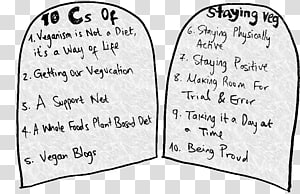 10 Cs Of
1. Veganism is Not a Diet,
it's a Way of Life
2. Getting Our Vegucation
3. A Support Net
4. A Whole Foods Plant Based Diet
5. Vegan Blogs
Staying Veg
6. Staying Physically
Active
7. Staying Positive
8. Making Room For
Trial & Error
9. Taking it a Day at
a Time
10. Being Proud